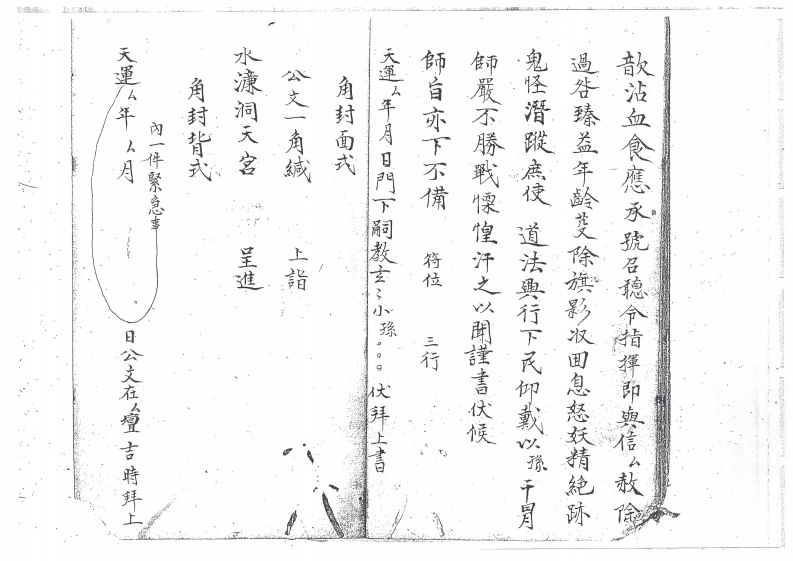 歆沾血食應承號召聽令指揮即與信厶赦除
過咎臻益年齡蔓除旗影收回息怒妖精絕跡
鬼怪潛蹤庶使 道法興行下民仰戴以孫干冒
師嚴不勝戰慄惶汗之以聞謹書伏候
師旨亦下不備 符位 三行
天運厶年月日門下嗣教玄〻小孫。。。伏拜上書
角封面式
公文一角緘 上詣
水濂洞天宮 呈進
角封背式
內一件緊急事
天運厶年厶月 日公文在厶壇吉時拜上